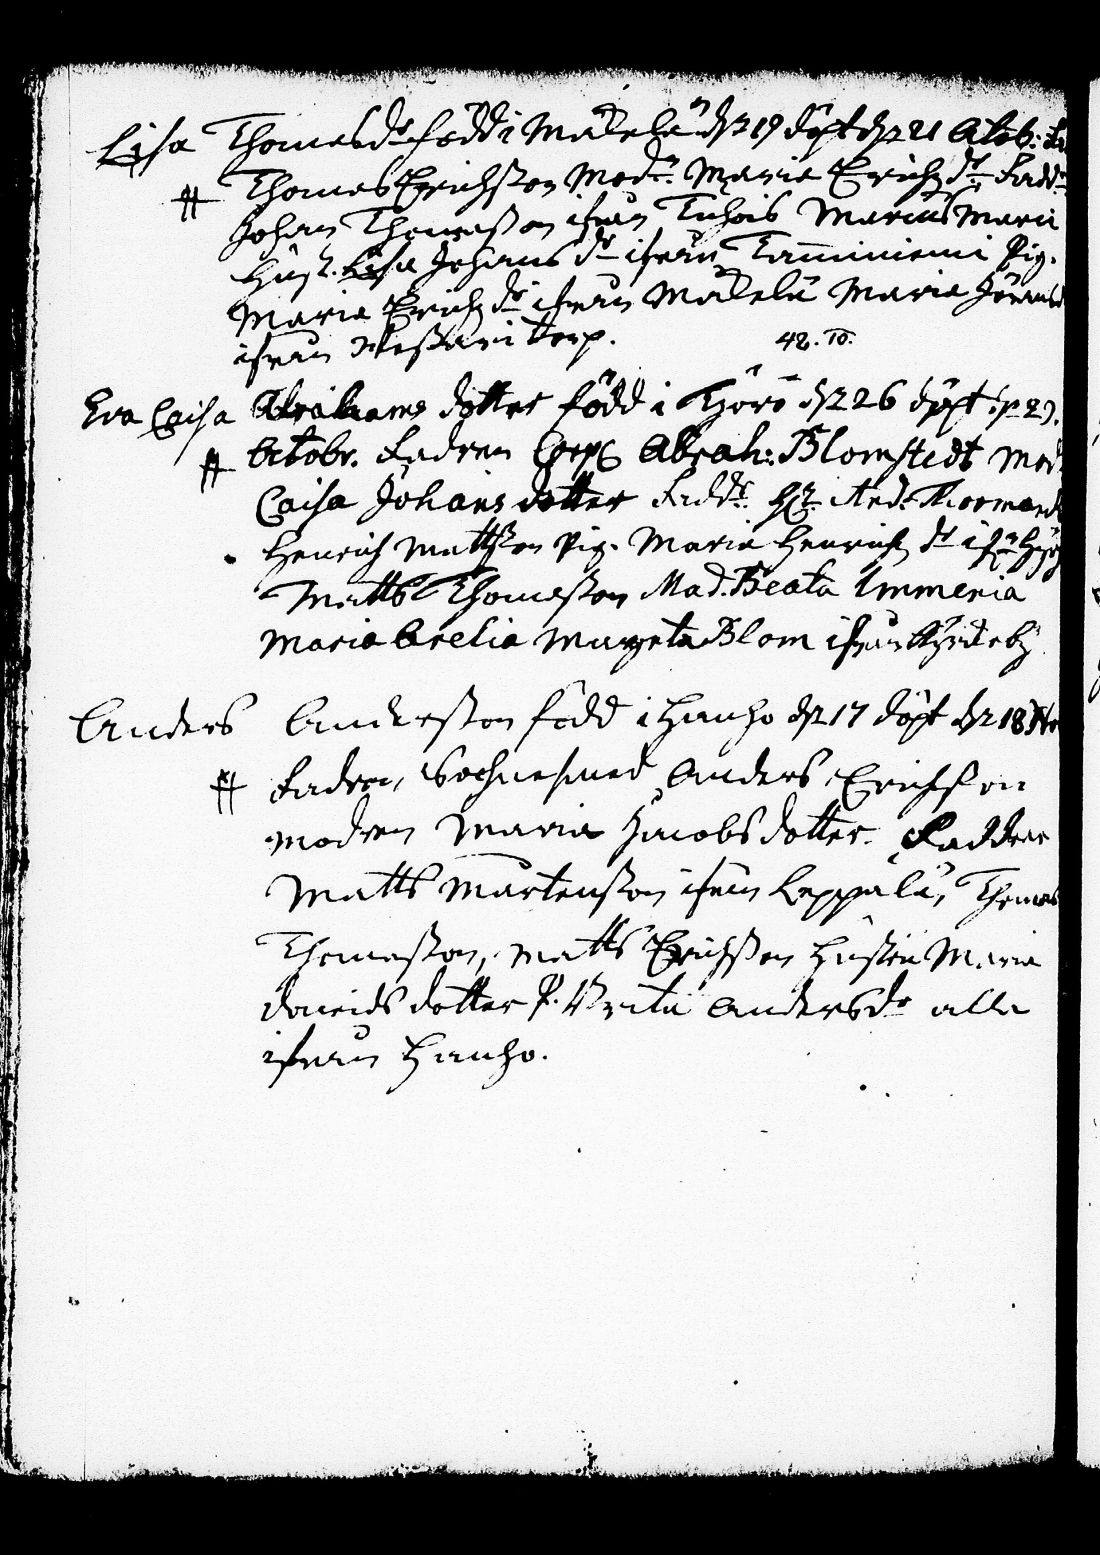 Lisa Thomasdr född i Mäkelä d. 19 döpt d. 21 Octob: Fa
Thomas Erichsson Modr. Maria Erichsdr Faddr
Johan Thomasson ifrån Marcus Marci
Hust. Lisa Johansdr ifrån Tamminiemi Pig.
Maria Erichsdr ifrån Mäkelä Maria Jöransd
ifrån torp. 42. 10.
Eva Caisa Abrahams dotter född i Thörö d. 26 döpt d. 29.
Octobr. Fadren Corp. Abrah: Blomstedt Mod
Caisa Johans dotter Faddr. Hr. And.
Henrich Mattsson Pig. Maria Henrichsdr
Matts Thomasson Mad. Beata Immeria
Maria Margeta Blom ifrån
Anders Andersson född i Hanho d. 17 döpt d. 18
Fadren, Sochnesmed Anders Erichsson
modren Maria Jacobsdotter. Faddrar
Matts Mårtensson ifrån Leppälä, Thomas
Thomasson, Matts Erichsson hustru Maria
Davidsdotter P. Brita Andersdr alla
ifrån Hanho.